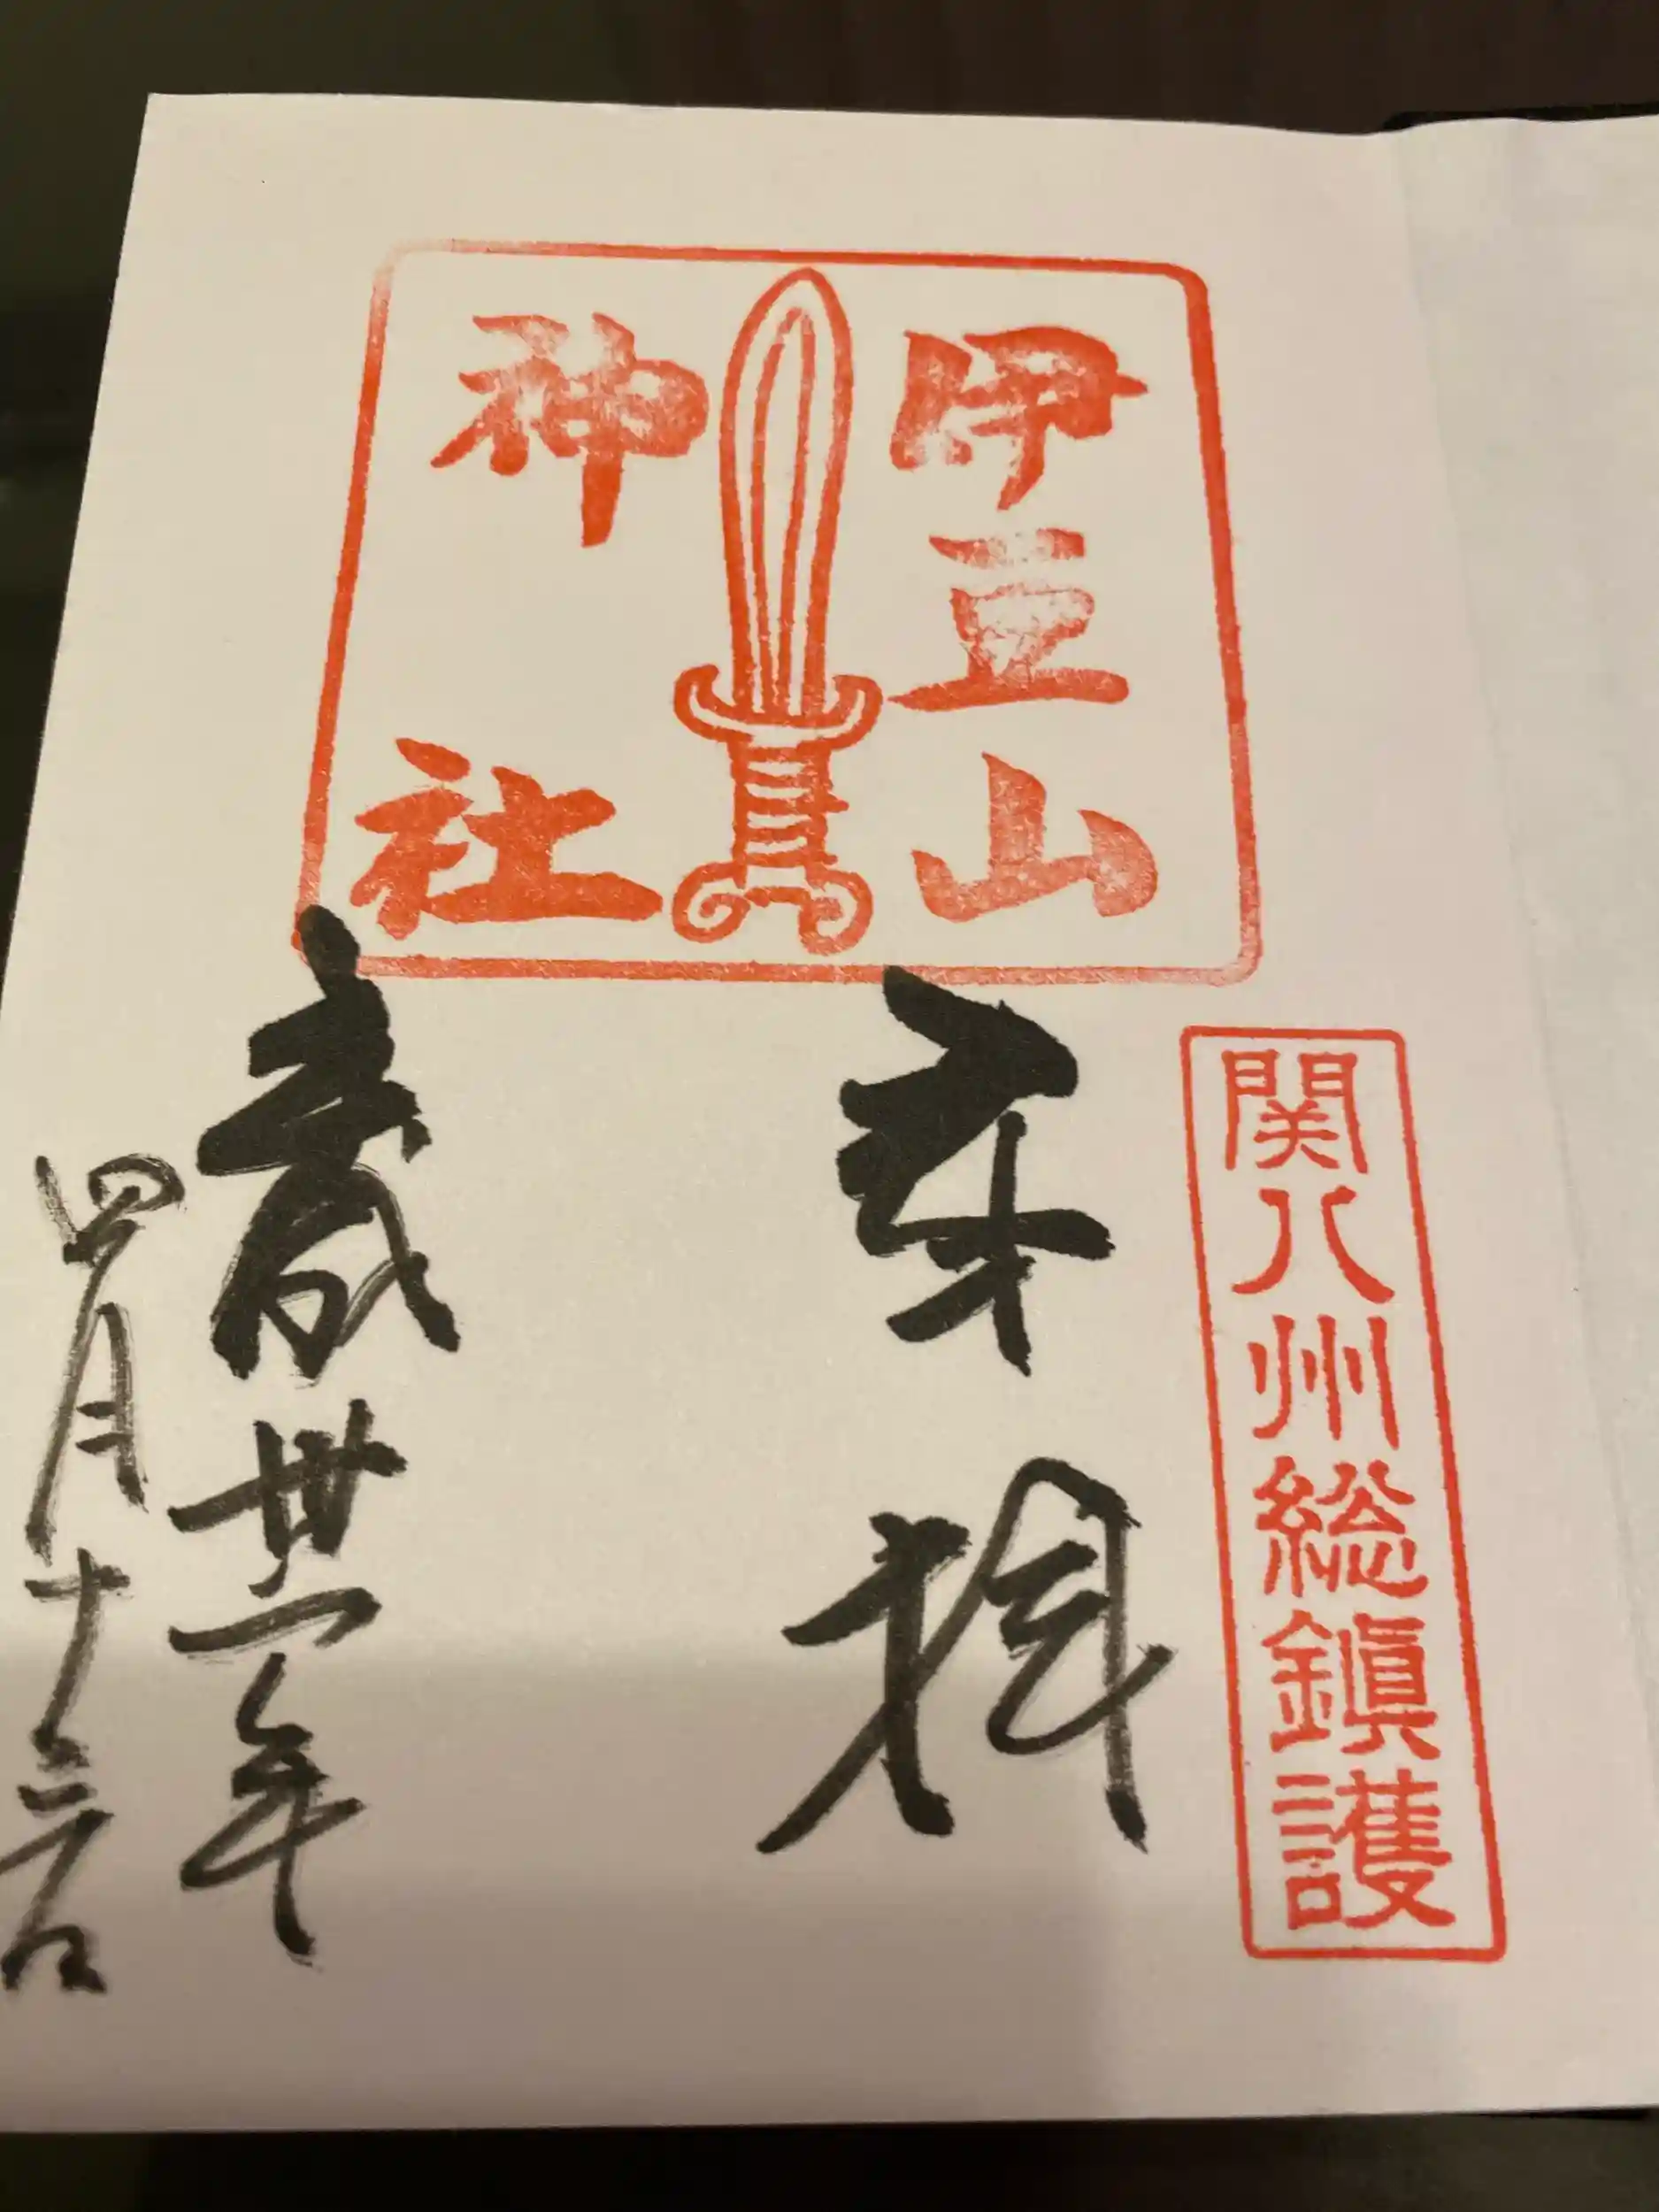 関八州総鎮護
伊豆山
神社
奉拝
平成卅一年
四月十三日